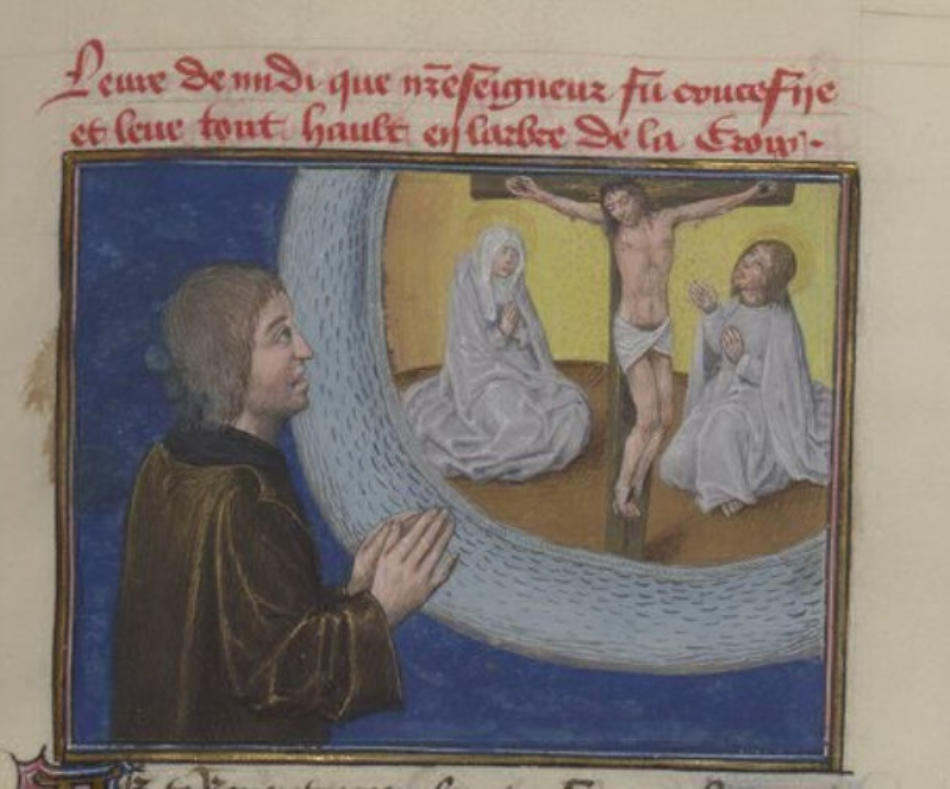 Leure de midi que nr̄e seigneur fu coucefije
et leue tout hault en larbre de la Croix.